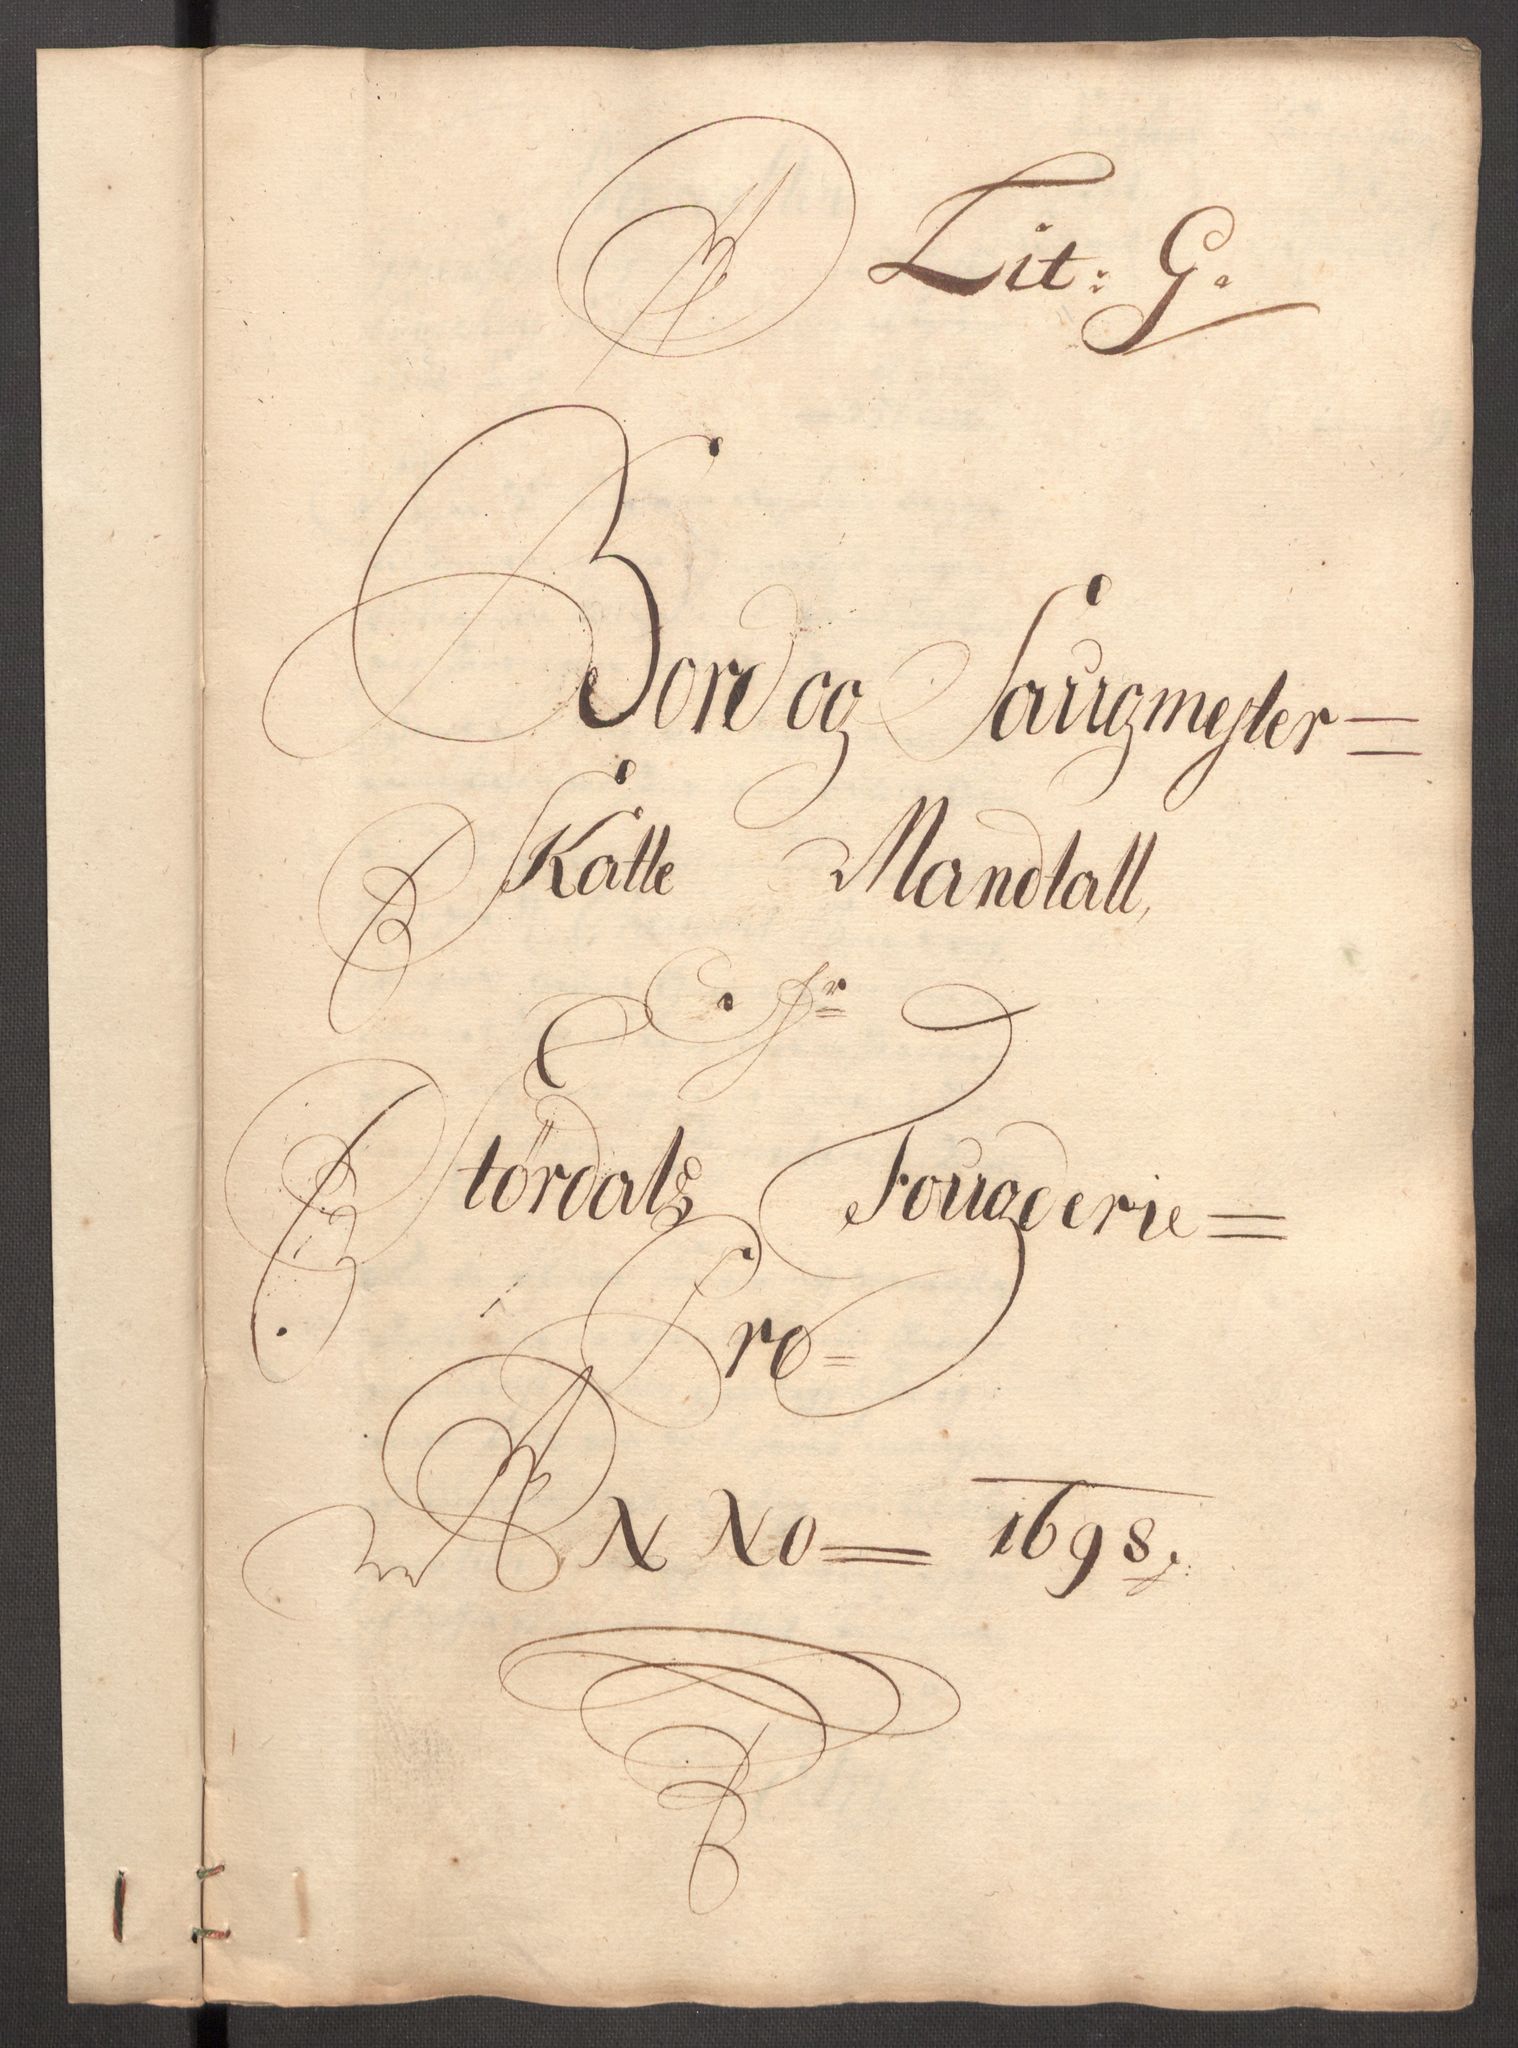 Lit: G.
Bord og Saugmester=
Skatte Mandtall,
fr
Størdals Fougderie=
Pro=
ANNO= 1698.